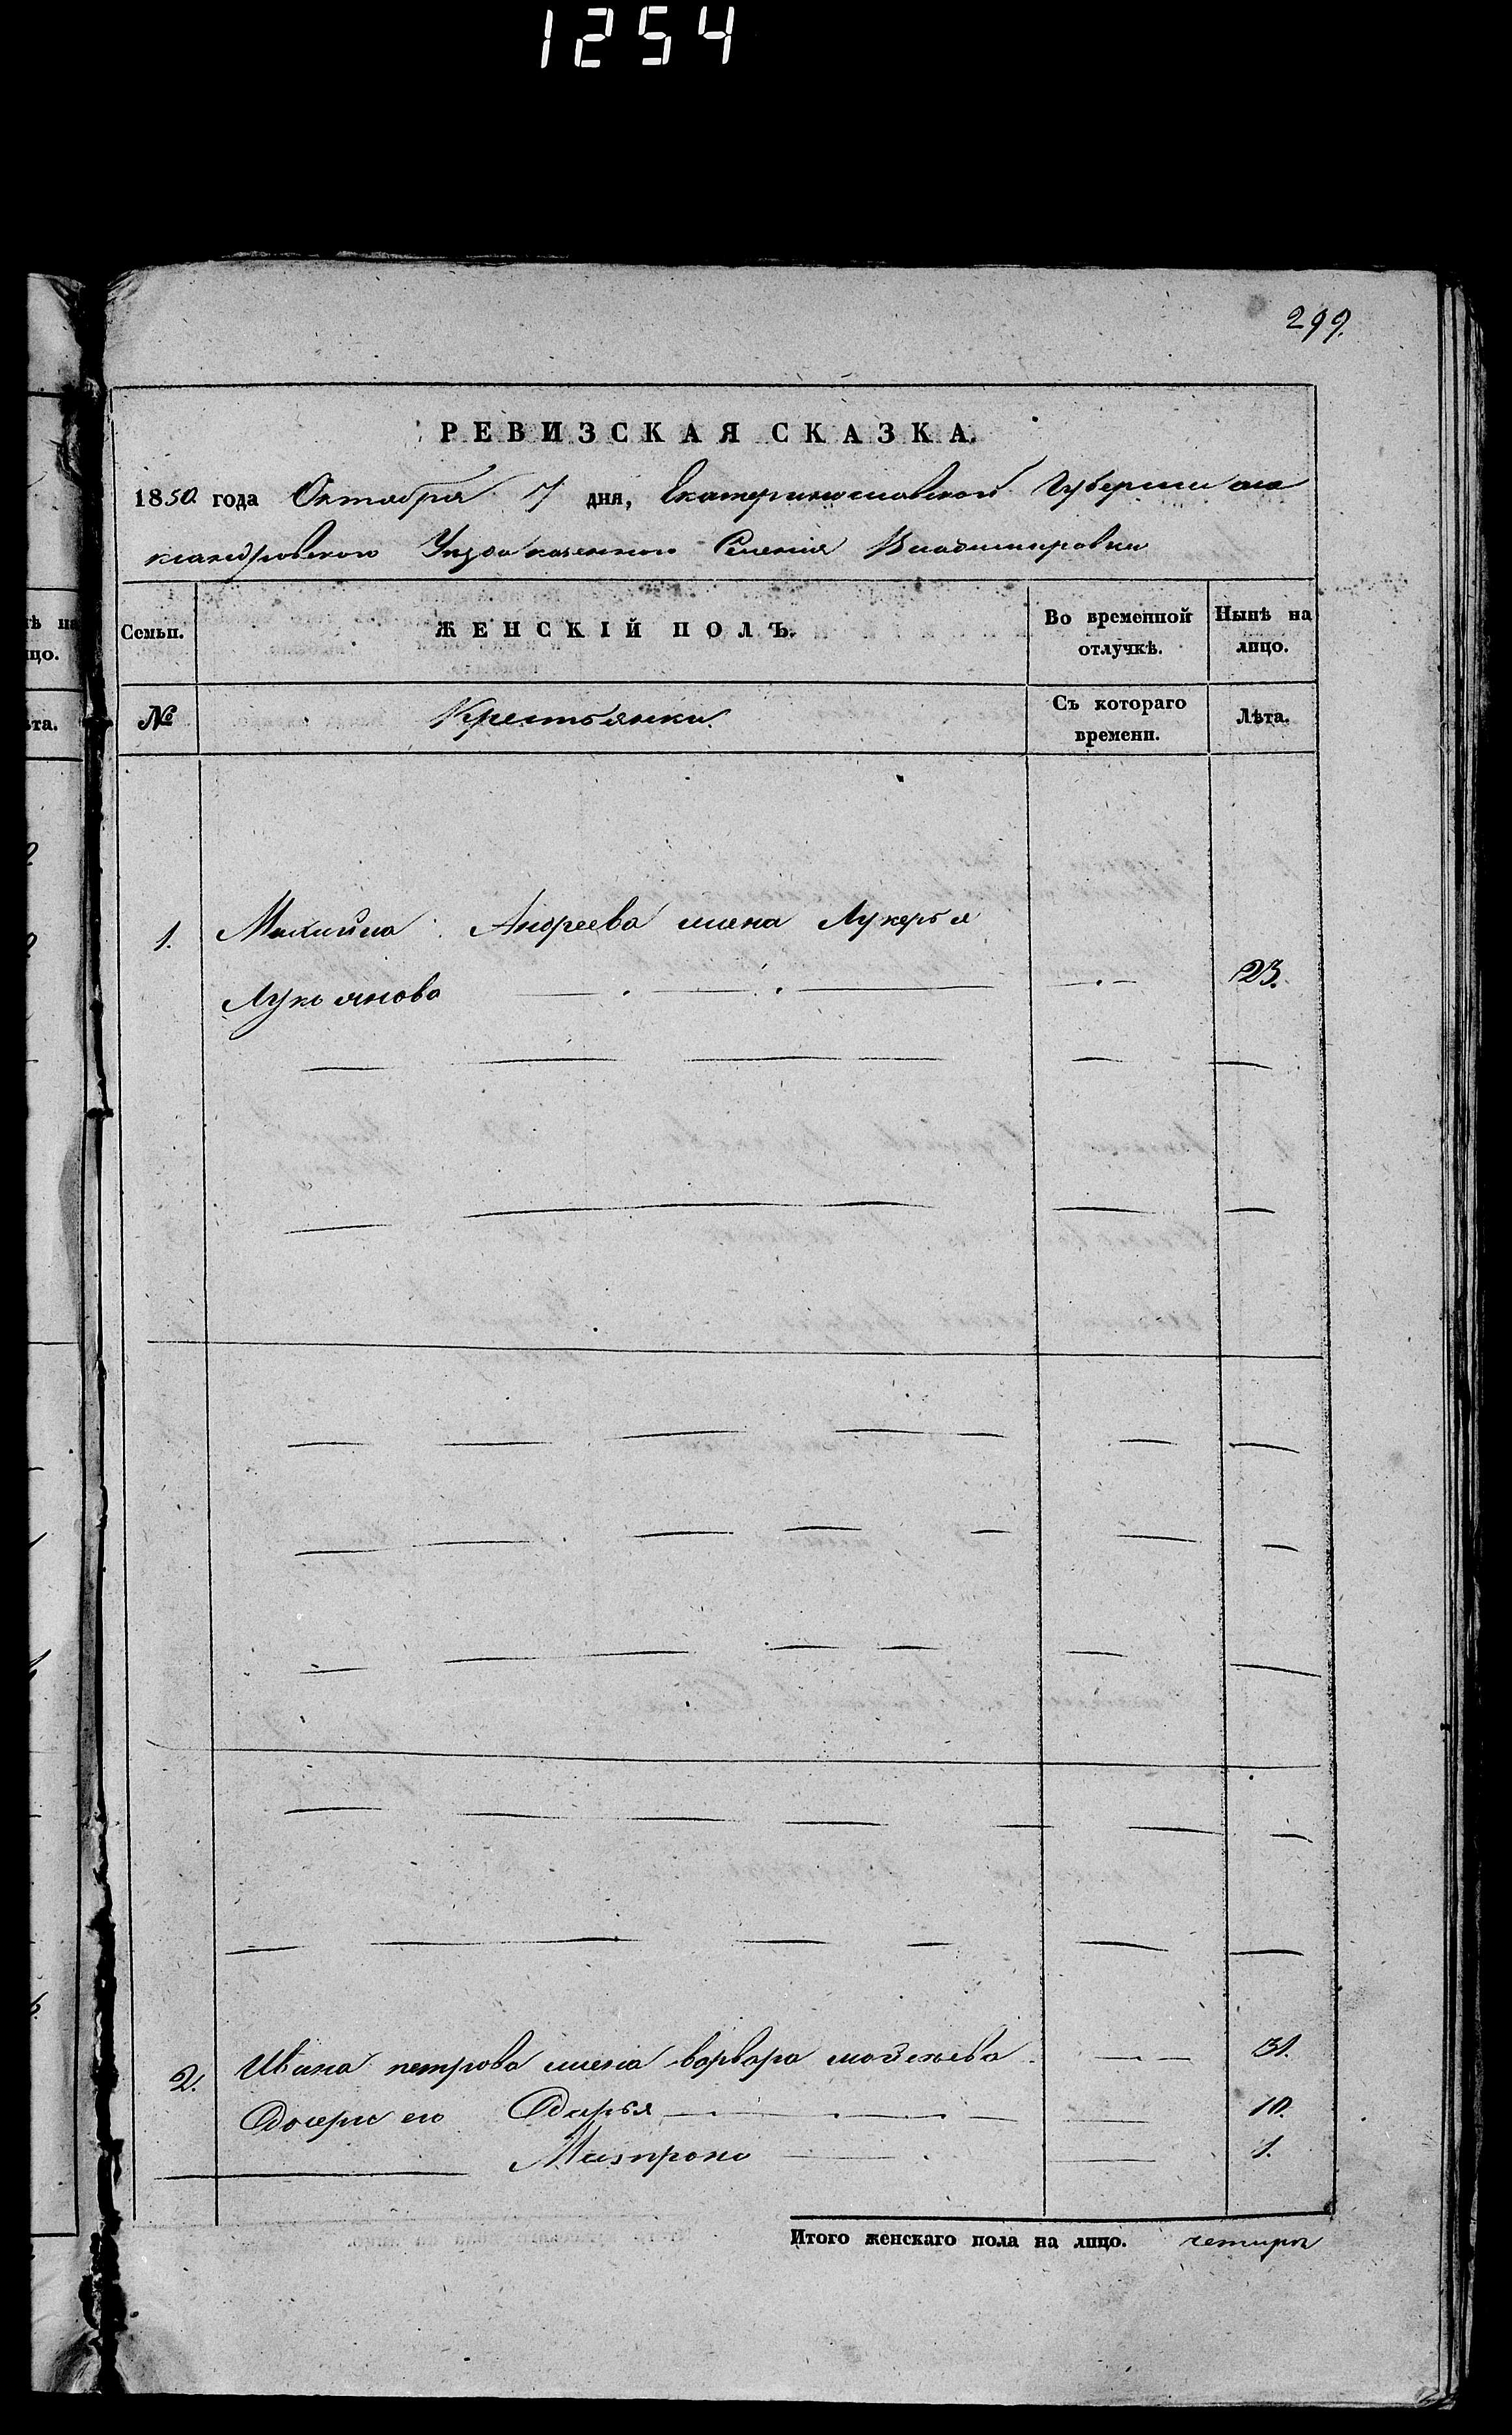 1254
299.
РЕВИЗСКАЯ СКАЗКА.
1850 года Октября 7 дня, Екатеринославской Губернии але
ксандровского Уезда казенного Селения Владимировки
Семьи. ЖЕНСКІЙ ПОЛЪ. Во временной отлучкѣ. Нынѣ на лицо.
№ Крестьянки. Съ котораго времени. Лѣта.
1. Михайла Андреева жена Лукерья
Лукьянова 23.
2. Ивана петрова жена варвара мойсеева 31.
Дочери его Дарья 10.
Матрона 1.
Итого женскаго пола на лицо. четыре